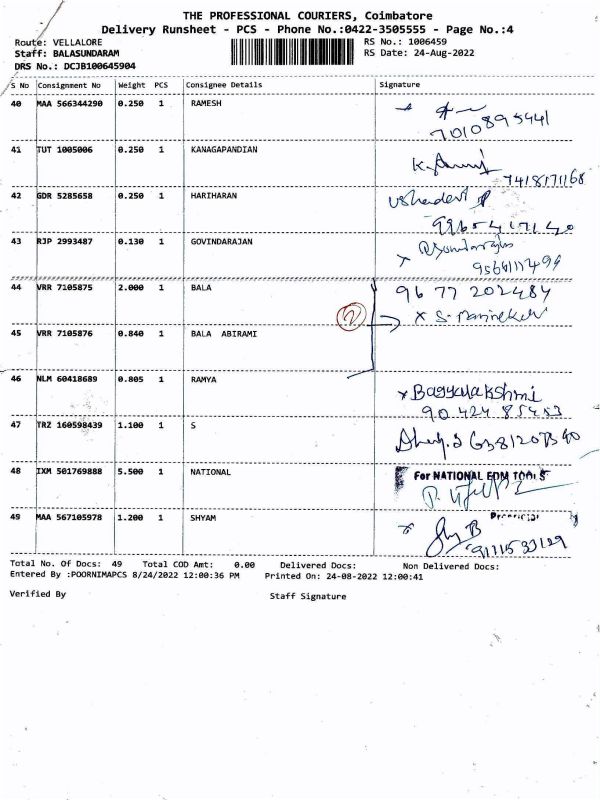 THE PROFESSIONAL COURIERS, Coimbatore
Delivery Runsheet - PCS - Phone No.:0422-3505555 - Page No.:4
Route: VELLALORE
RS No.: 1006459
Staff: BALASUNDARAM
RS Date: 24-Aug-2022
DRS No.: DCJB100645904
S No Consignment No Weight PCS Consignee Details Signature
40 MAA 566344290 0.250 1 RAMESH
7010895441
41 TUT 1005006 0.250 1 KANAGAPANDIAN
7418171168
42 GDR 5285658 0.250 1 HARIHARAN
Ushadevi
9965417140
43 RJP 2993487 0.130 1 GOVINDARAJAN
44 VRR 7105875 2.000 1 BALA
96 77 202484
45 VRR 7105876 0.840 1 BALA ABIRAMI
x S.
46 NLM 60418689 0.805 1 RAMYA
x Bagyalakshmi
90424 85453
47 TRZ 160598439 1.100 1 S
48 IXM 501769888 5.500 1 NATIONAL
For NATIONAL EDM TOOLS
Proprietor
49 MAA 567105978 1.200 1 SHYAM
Total No. Of Docs: 49 Total COD Amt: 0.00 Delivered Docs: Non Delivered Docs:
Entered By :POORNIMAPCS 8/24/2022 12:00:36 PM Printed On: 24-08-2022 12:00:41
Verified By
Staff Signature